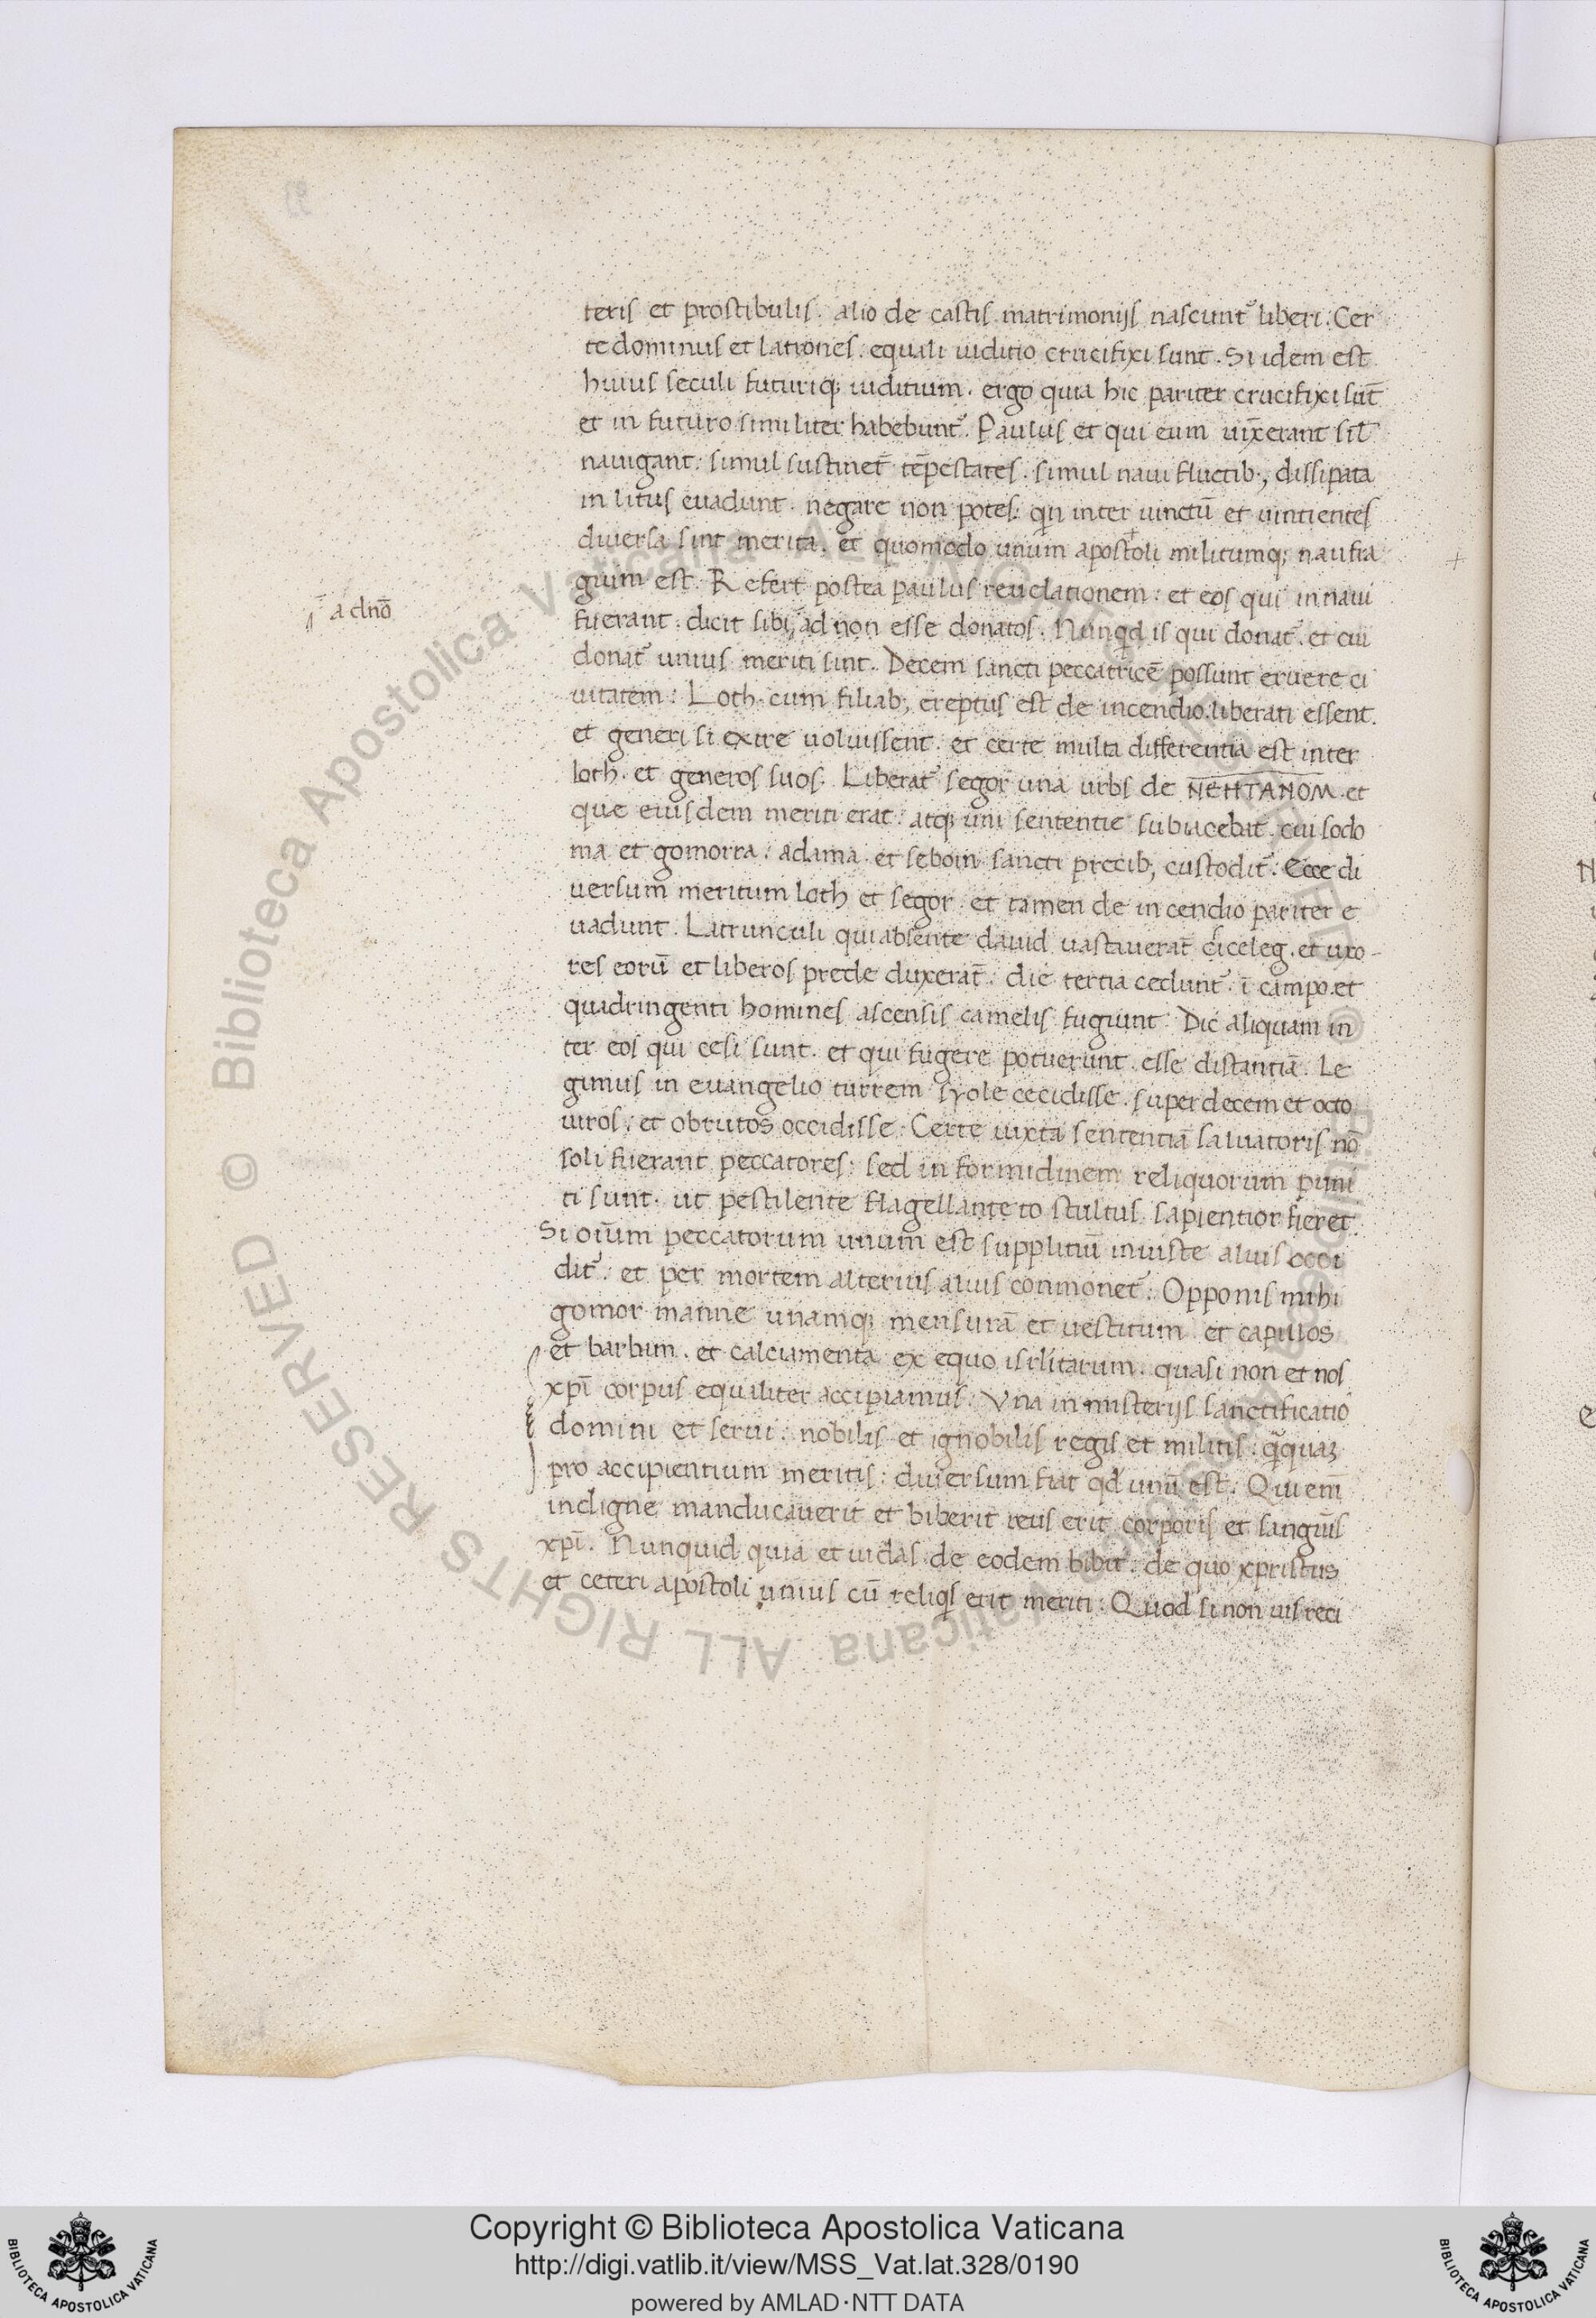 teris et prostibulis. alio de castis matrimonijs nascunt᷑ liberi. Cer
te dominus et latrones. equali iuditio crucifixi sunt. Si idem est
huius seculi futuriq; iuditium. ergo quia hic pariter crucifixi sūt
et in futuro similiter habebunt᷑. Paulus et qui eum uīxerant sil̄
nauigant. simul sustinet̄ tēpestates. simul naui fluctib; dissipata
in litus euadunt. negare non potes. qn̄ inter uinctū et uintientes
diuersa sint merita. et quomodo unum apostoli militumq; naufra
gium est. Refert postea paulus reuelationem: et eos qui in naui
fuerant: dicit sibi ad non esse donatos. Nunqd is qui donat᷑. et cui
a dn̄o
donat᷑ unius meriti sint. Decem sancti peccatricē possunt eruere ci
uitatem: Loth. cum filiab; ereptus est de incendio. liberati essent.
et generi si exire uoluissent. et certe multa differentia est inter
loth. et generos suos. Liberat᷑ segor una urbs de ΠΕΗΤΑΠΟΜ. et
que eiusdem meriti erat. atq; uni sententie subiacebat. cui sodo
ma et gomorra. adama. et seboin sancti precib; custodit᷑. Ecce di
uersum meritum loth et segor. et tamen de incendio pariter e
uadunt. Latrunculi qui absente dauid uastauerat̄ ciceleg. et uxo-
res eorū et liberos prede duxerat̄. die tertia cedunt᷑. ī campo. et
quadringenti homines ascensis camelis fugiunt. Dic aliquam in
ter eos qui cesi sunt. et qui fugere potuerunt. esse distantiā. Le
gimus in euangelio turrem syole cecidisse. super decem et octo
uiros. et obrutos occidisse. Certe iuxta sententiā saluatoris nō
soli fuerant peccatores. sed in formidinem reliquorum puni
ti sunt. ut pestilente flagellante to stultus sapientior fieret
Si oīum peccatorum unum est supplitiū iniuste alius occi
dit᷑. et per mortem alterius alius conmonet᷑. Opponis mihi
gomor manne unamq; mensurā et uestitum. et capillos
et barbam. et calciamenta ex equo isrlitarum. quasi non et nos
xpī corpus equaliter accipiamus. Vna in misterijs sanctificatio
domini et serui. nobilis et ignobilis regis et militis. qͣqua;
pro accipientium meritis. diuersum fiat qd unū est. Qui em̄
indigne manducauerit et biberit reus erit corporis et sangiīs
xpī. Nunquid quia et iudas de eodem bibit. de quo xpristus
et ceteri apostoli unius cū reliqis erit meriti. Quod si non uis reci
Copyright © Biblioteca Apostolica Vaticana
http://digi.vatlib.it/view/MSS_Vat.lat.328/0190
powered by AMLAD·NTT DATA